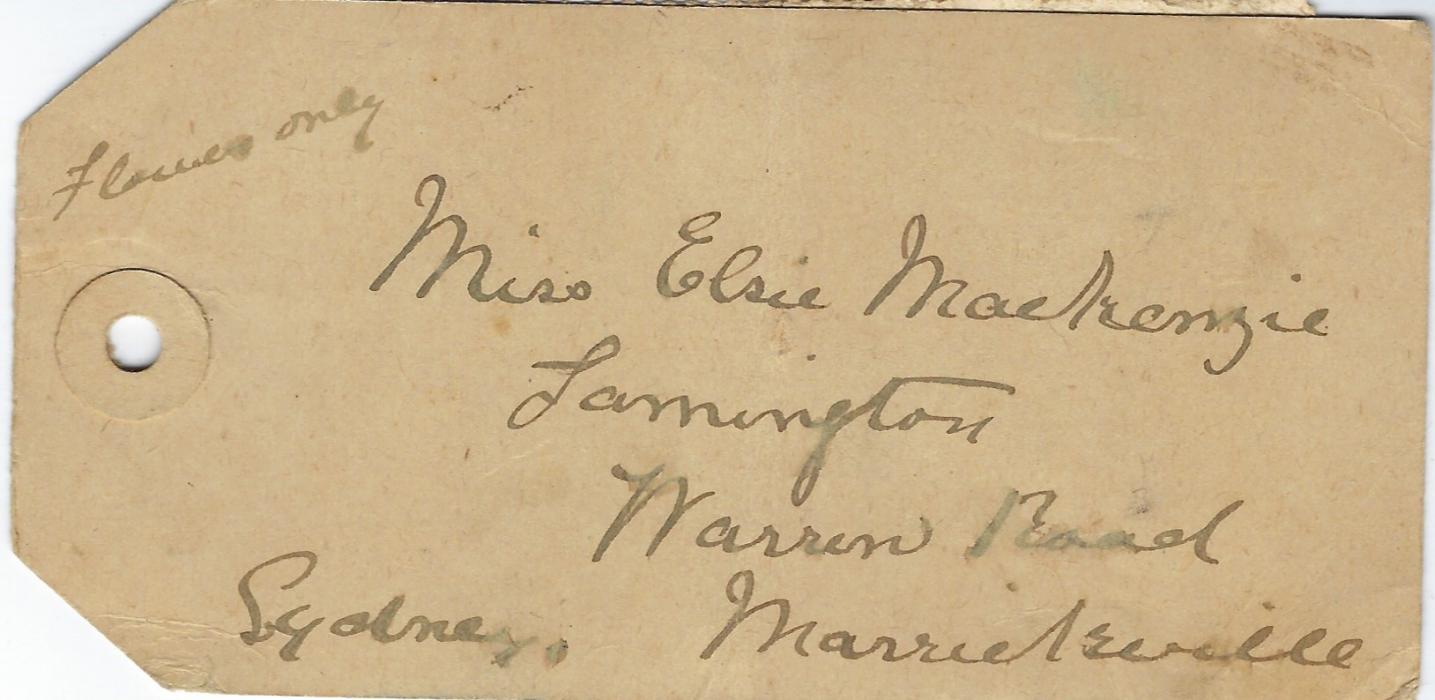 Flowers only
Miss Elsie Mackenzie
Lamington
Warren Road
Sydney, Marrickville